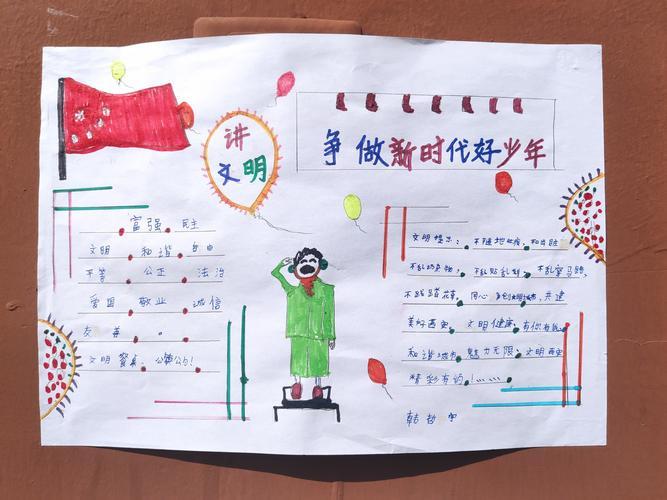 讲
文明
争做新时代好少年
富强 民主
文明 和谐 自由
平等 公正 法治
爱国 敬业 诚信
友善
文明餐桌,公德公勺!
文明提示:不随地吐痰,和
不乱扔杂物,不乱贴乱刻,不乱穿马路,
不践踏花草,同心争创文明城市,共建
美好西安,文明健康,有你有我
和谐城市 魅力无限,文明西安
精彩有约!……
韩哲宇